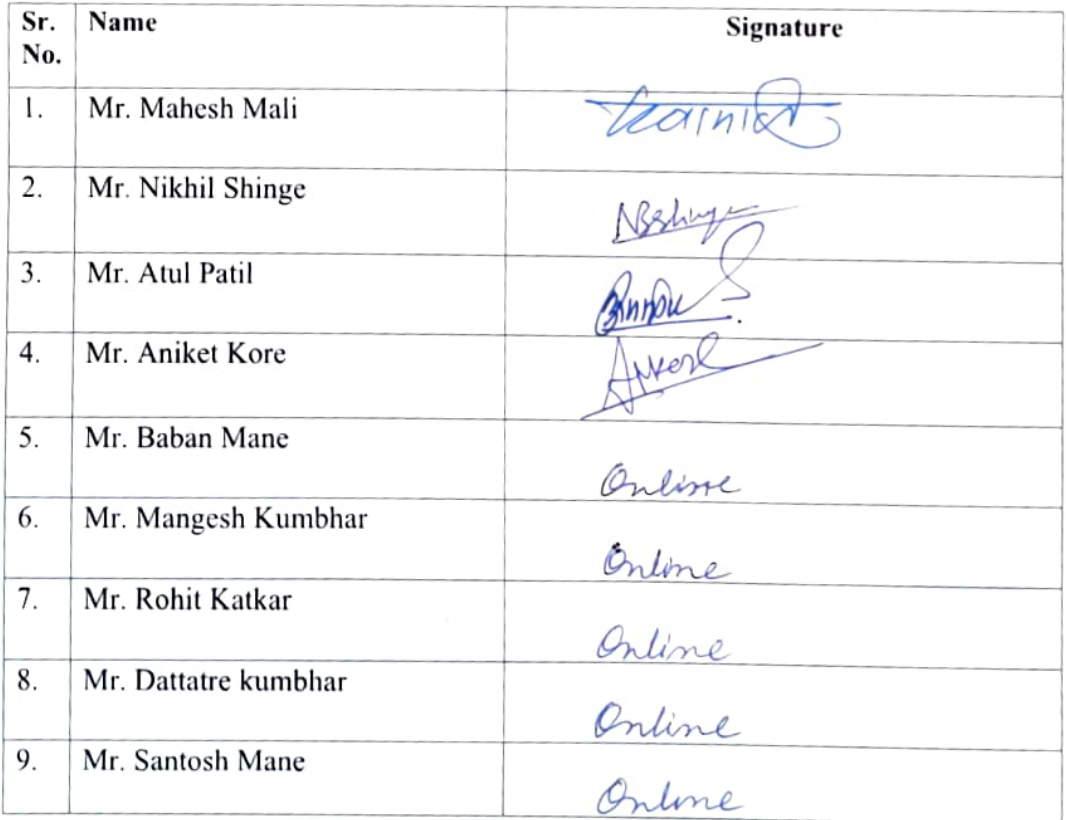 Sr. No. Name Signature
1. Mr. Mahesh Mali
2. Mr. Nikhil Shinge NBShinge
3. Mr. Atul Patil
4. Mr. Aniket Kore
5. Mr. Baban Mane Online
6. Mr. Mangesh Kumbhar Online
7. Mr. Rohit Katkar Online
8. Mr. Dattatre kumbhar Online
9. Mr. Santosh Mane Online